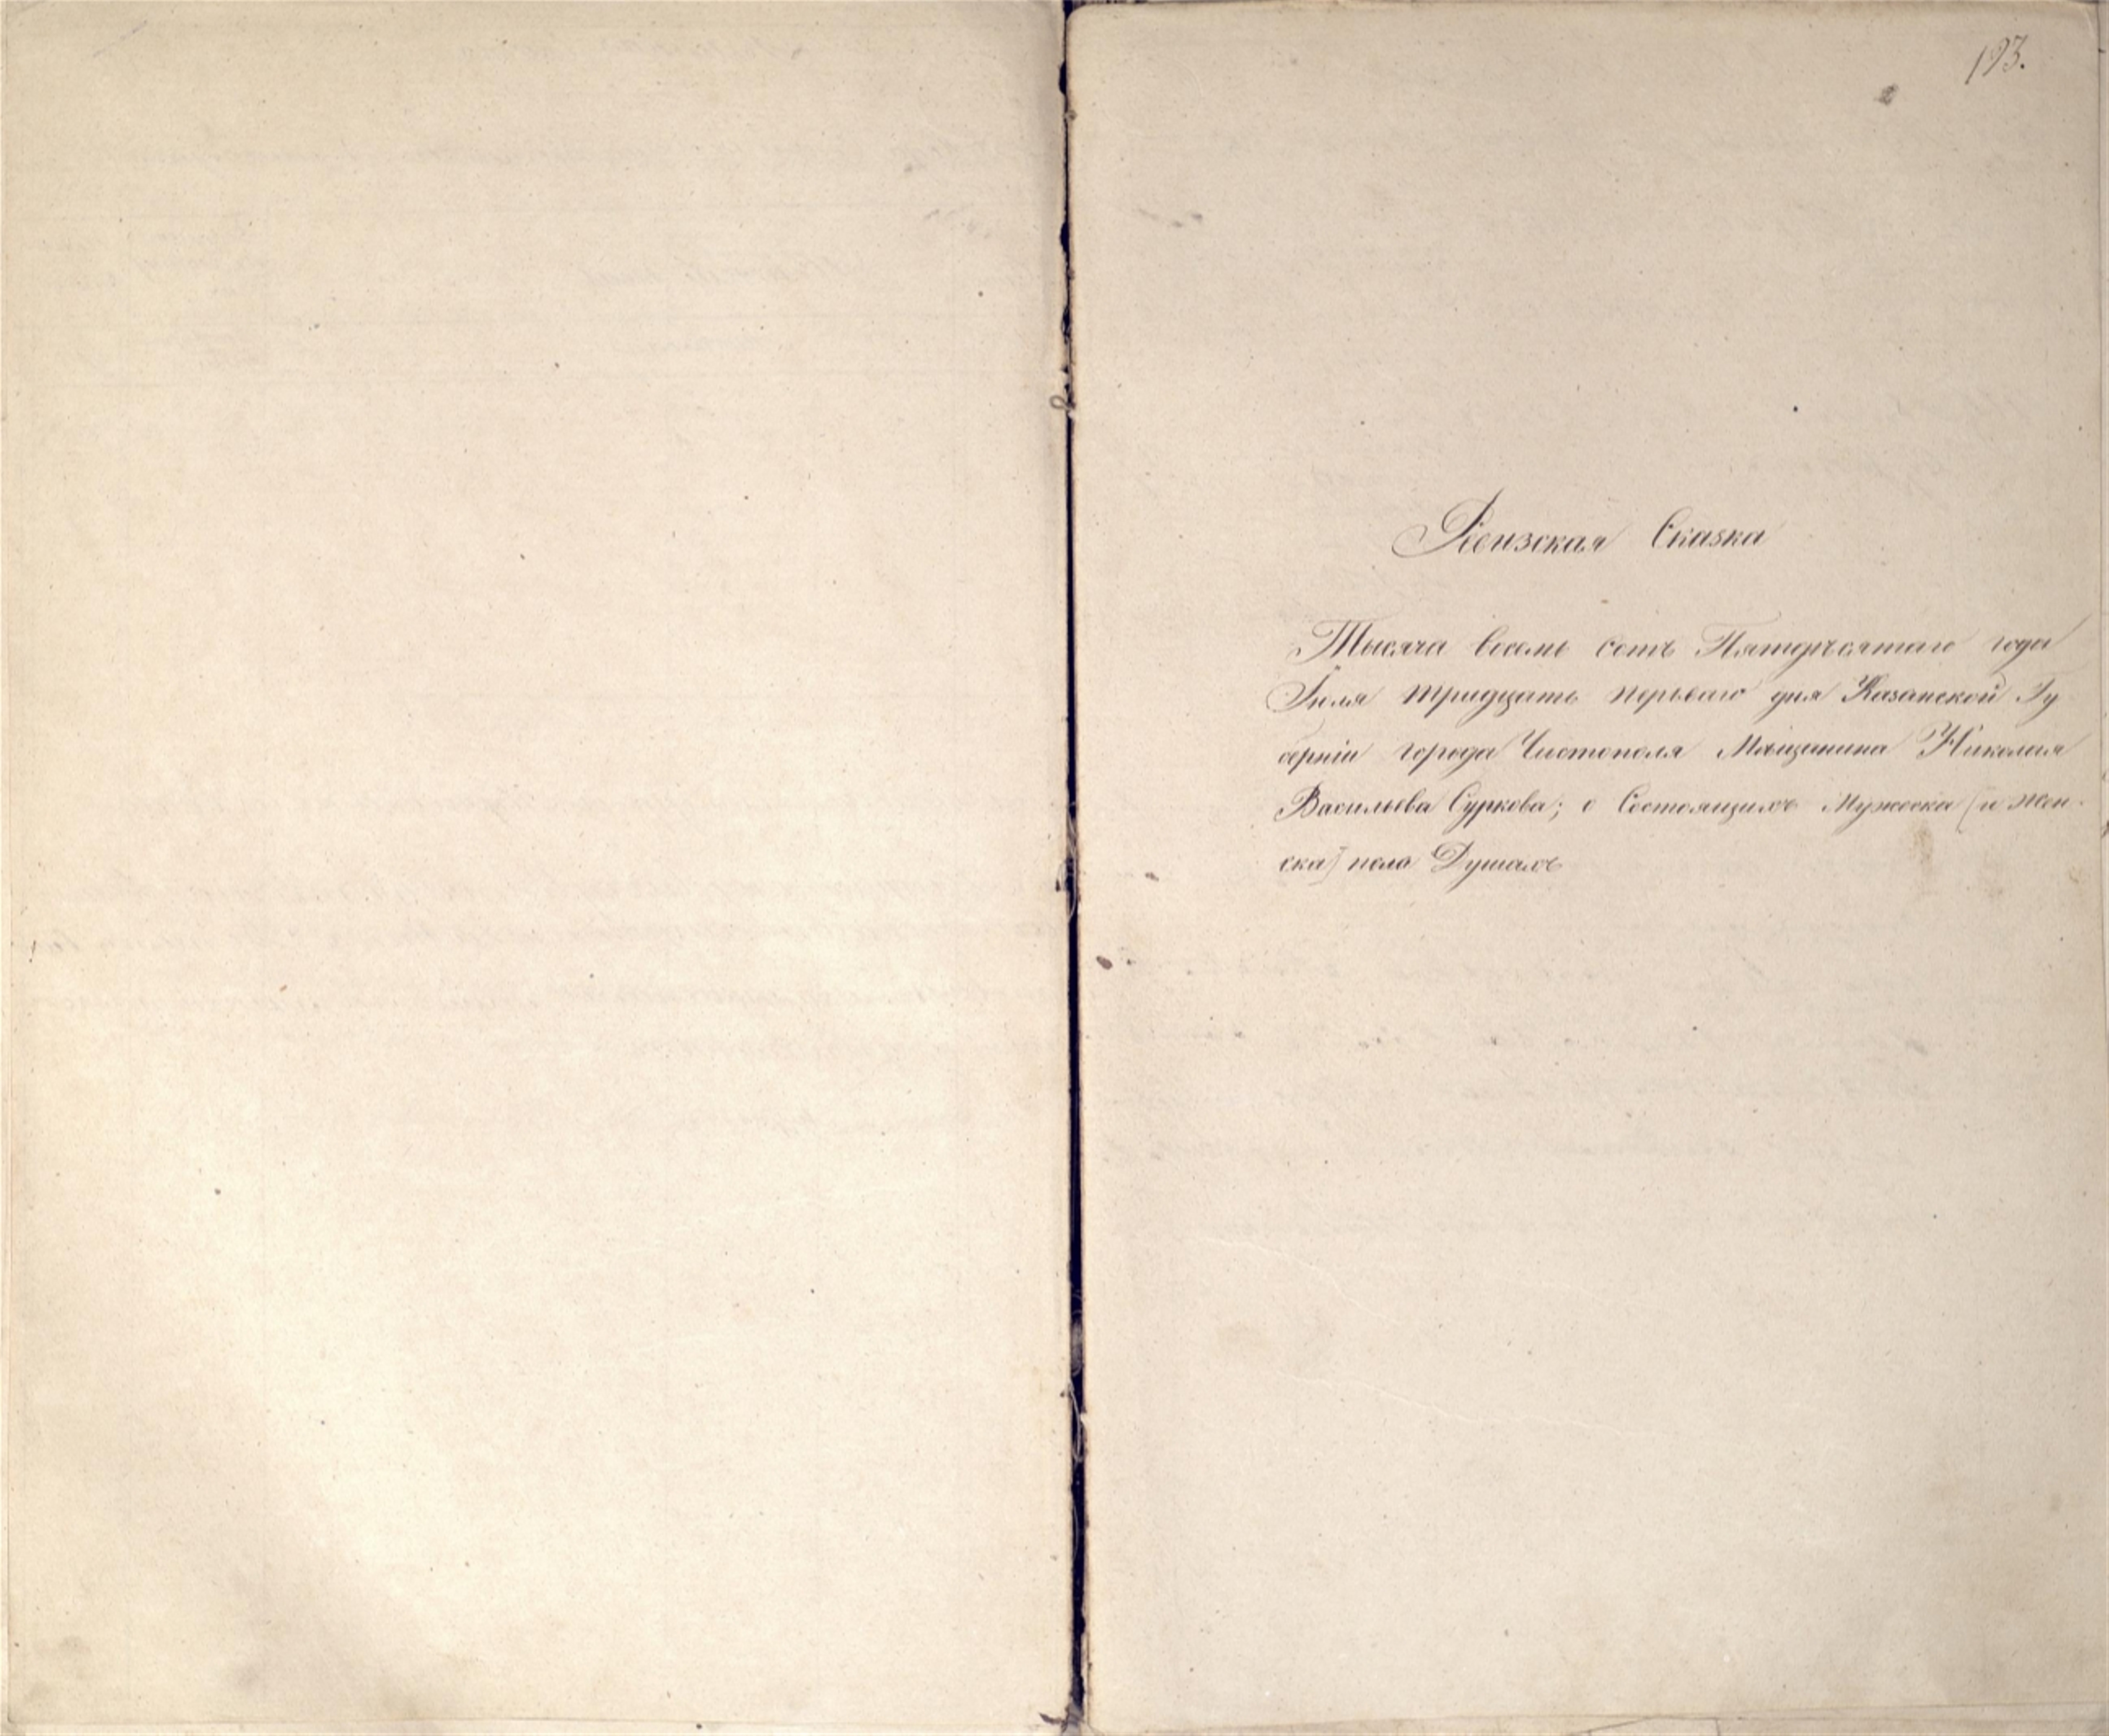 193.
Ревизская Сказка
Тысяча восемь сотъ Пятдесятаго года
Іюля тридцать перваго дня Казанской Гу
берніи города Чистополя Мѣщанина Николая
Васильева Суркова; о Состоящихъ Мужеска [и жен-
ска] пола Душахъ